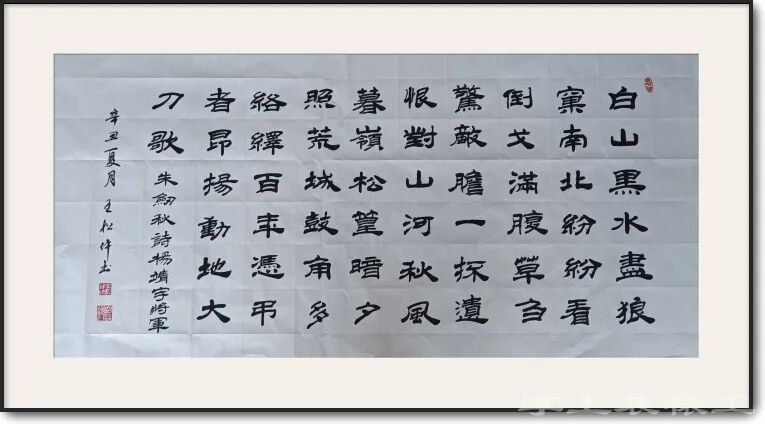 白山黑水盡狼
窠南北紛紛看
倒戈滿腹草刍
驚敵膽一探遺
恨對山河秋風
暮嶺松篁暗夕
照荒城鼓角多
絡繹百年憑弔
者昂揚動地大
刀歌 朱劒秋詩楊靖宇將軍
辛丑夏月 王松 书